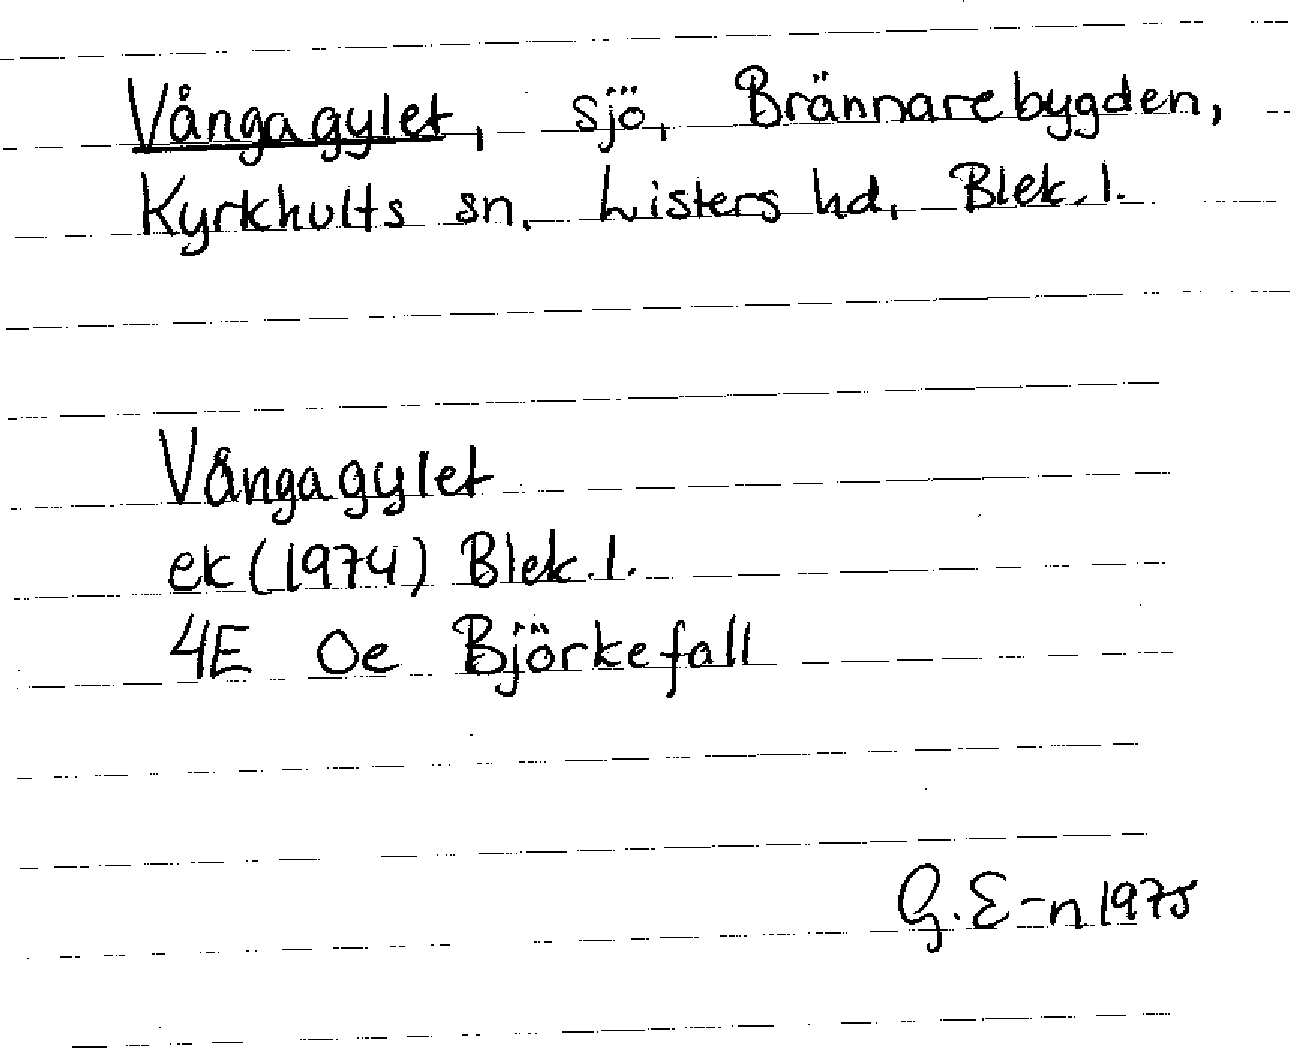 Vångagylet, sjö, Brännarebygden,
Kyrkhults sn. Listers hd. Blek. l.
Vångagylet
ek (1974) Blek. l.
4E 0e Björkefall
G. E=n 1975